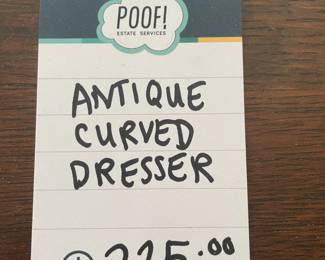 POOF!
ESTATE SERVICES
ANTIQUE
CURVED
DRESSER
225.00